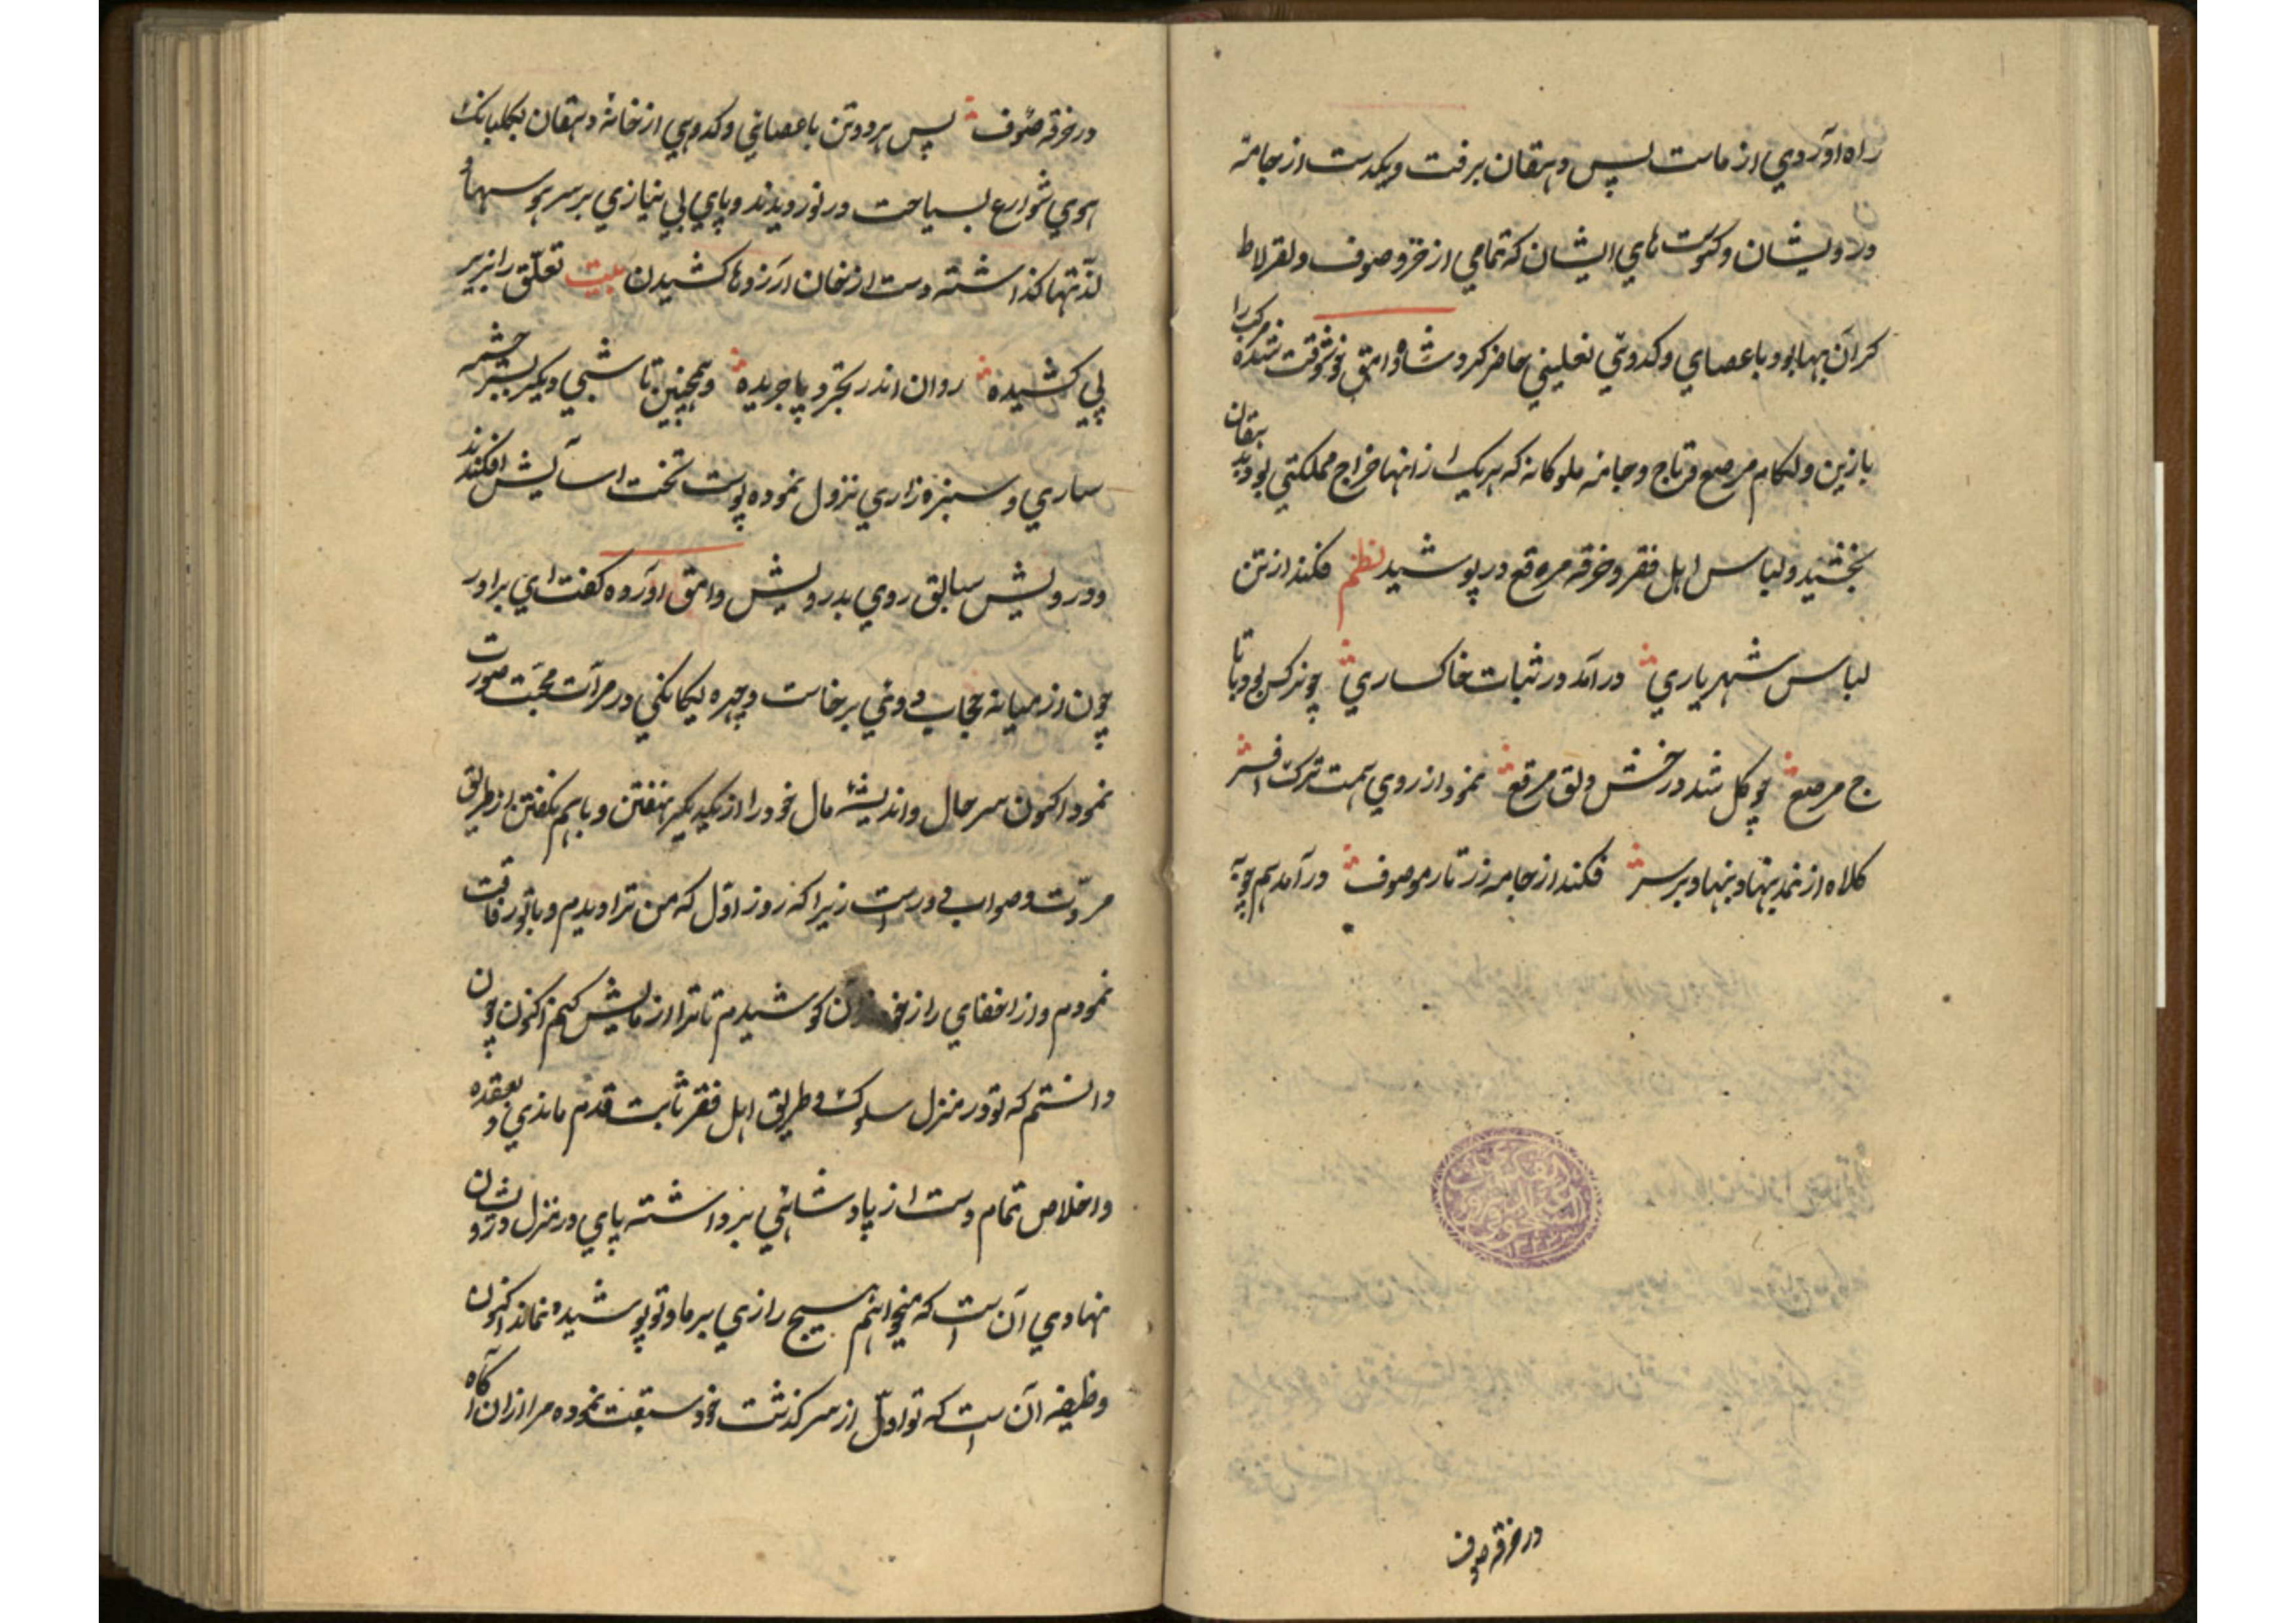 راه آوردی از ماست پس دهقان برفت و یکدست از جامه
درویشان و کسوت های ایشان که تمامی از خز و صوف و لقرلاط
کران بها بود با عصای و کدوئی نعلینی حاضر کرد شاه وامق خوشوقت شده مرکب را
با زین و لکام مرصع و تاج و جامه ملوکانه که هریک از انها خراج مملکتی بود بدهقان
بخشید و لباس اهل فقر و خرقه مرقع در پوشید نظم فکند از تن
لباس شهریاری در آمد در ثبات خاکساری چو نرکس بود با تا
ج مرصع چو کل شد در خش دلق مرقع نمود از روی همت ترک افسر
کلاه از نمد بنهاد بر سر فکند از جامه زر تار موصوف در آمد همچو به
در خرقه صوف
در خرقه صوف پس هر دو تن با عصائی و کدوی از خانه دهقان بکلبانک
هوی شوارع بسیاحت در نوردیدند و پای بی نیازی بر سر هوسها و
لذتها کذاشته دست از خان ارزوها کشیدن بیت تعلق را بزیر
پی کشیده روان اندر تجرد پا جریده و همچنین تا شبی دیکر بسر چشمه
ساری و سبزه زاری نزول نموده پوست تخت اسایش افکندند
و درویش سابق روی بدرویش وامق اورده کفت ای برادر
چون از میانه حجاب دوئی برخاست و چهره یکانکی در مرآت محبت صورت
نمود اکنون سر حال و اندیشه مال خود را از یکدیکر نهفتن و باهم نکفتن از طریق
مروت و صواب دور است زیرا که روز اول که من ترا دیدم و با تو رفاقت
نمودم و در اخفای راز کوشیدم تا ترا ازمایش کنم اکنون چون
دانستم که تو در منزل سلوک و طریق اهل فقر ثابت قدم ماندی و بعقده
و اخلاص تمام دست از پادشاهی برداشته پای در منزل درویشان
نهادی آن است که میخواهم هیچ رازی بر ما و تو پوشیده نماند اکنون
وظیفه آن است که تو اول از سرکذشت خود سبقت نموده مرا از ان آکاه